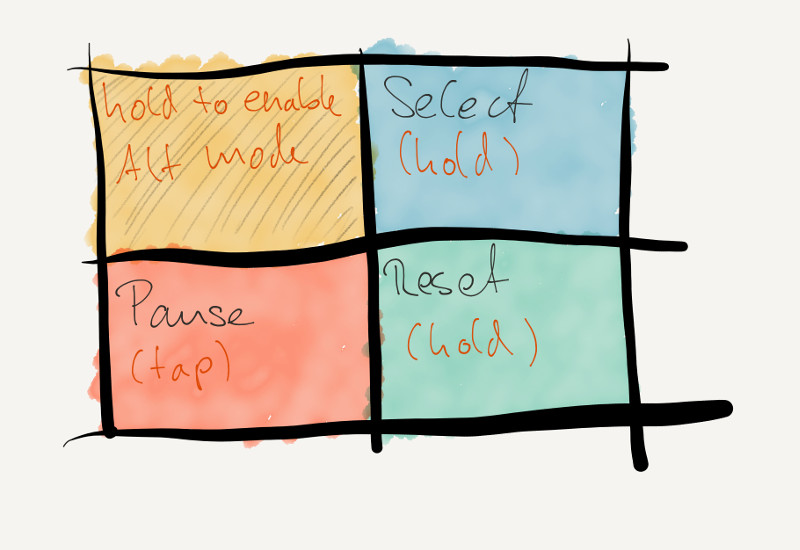 hold to enable
Alt mode
Select
(hold)
Pause
(tap)
Reset
(hold)